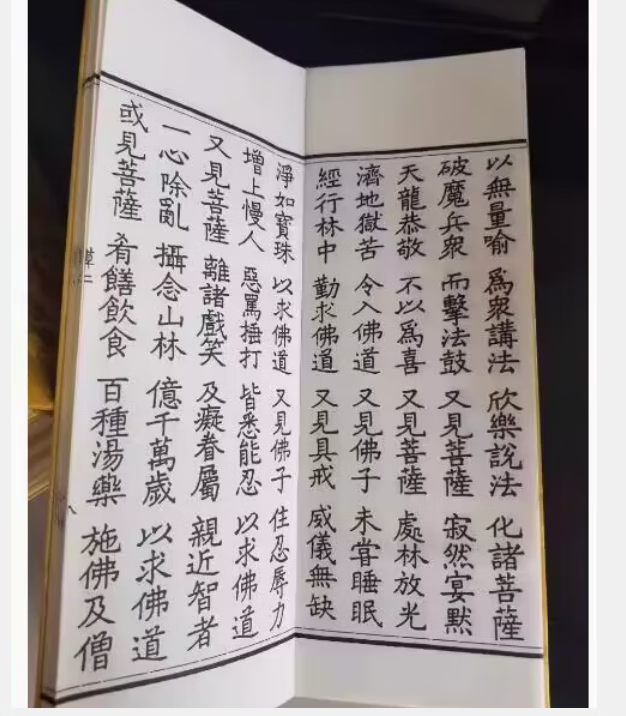 以無量喻 為衆講法 欣樂說法 化諸菩薩
破魔兵衆 而擊法鼓 又見菩薩 寂然宴默
天龍恭敬 不以為喜 又見菩薩 處林放光
濟地獄苦 令入佛道 又見佛子 未嘗睡眠
經行林中 勤求佛道 又見具戒 威儀無缺
淨如寶珠 以求佛道 又見佛子 住忍辱力
增上慢人 惡罵捶打 皆悉能忍 以求佛道
又見菩薩 離諸戲笑 及癡眷屬 親近智者
一心除亂 攝念山林 億千萬歲 以求佛道
或見菩薩 肴膳飲食 百種湯藥 施佛及僧